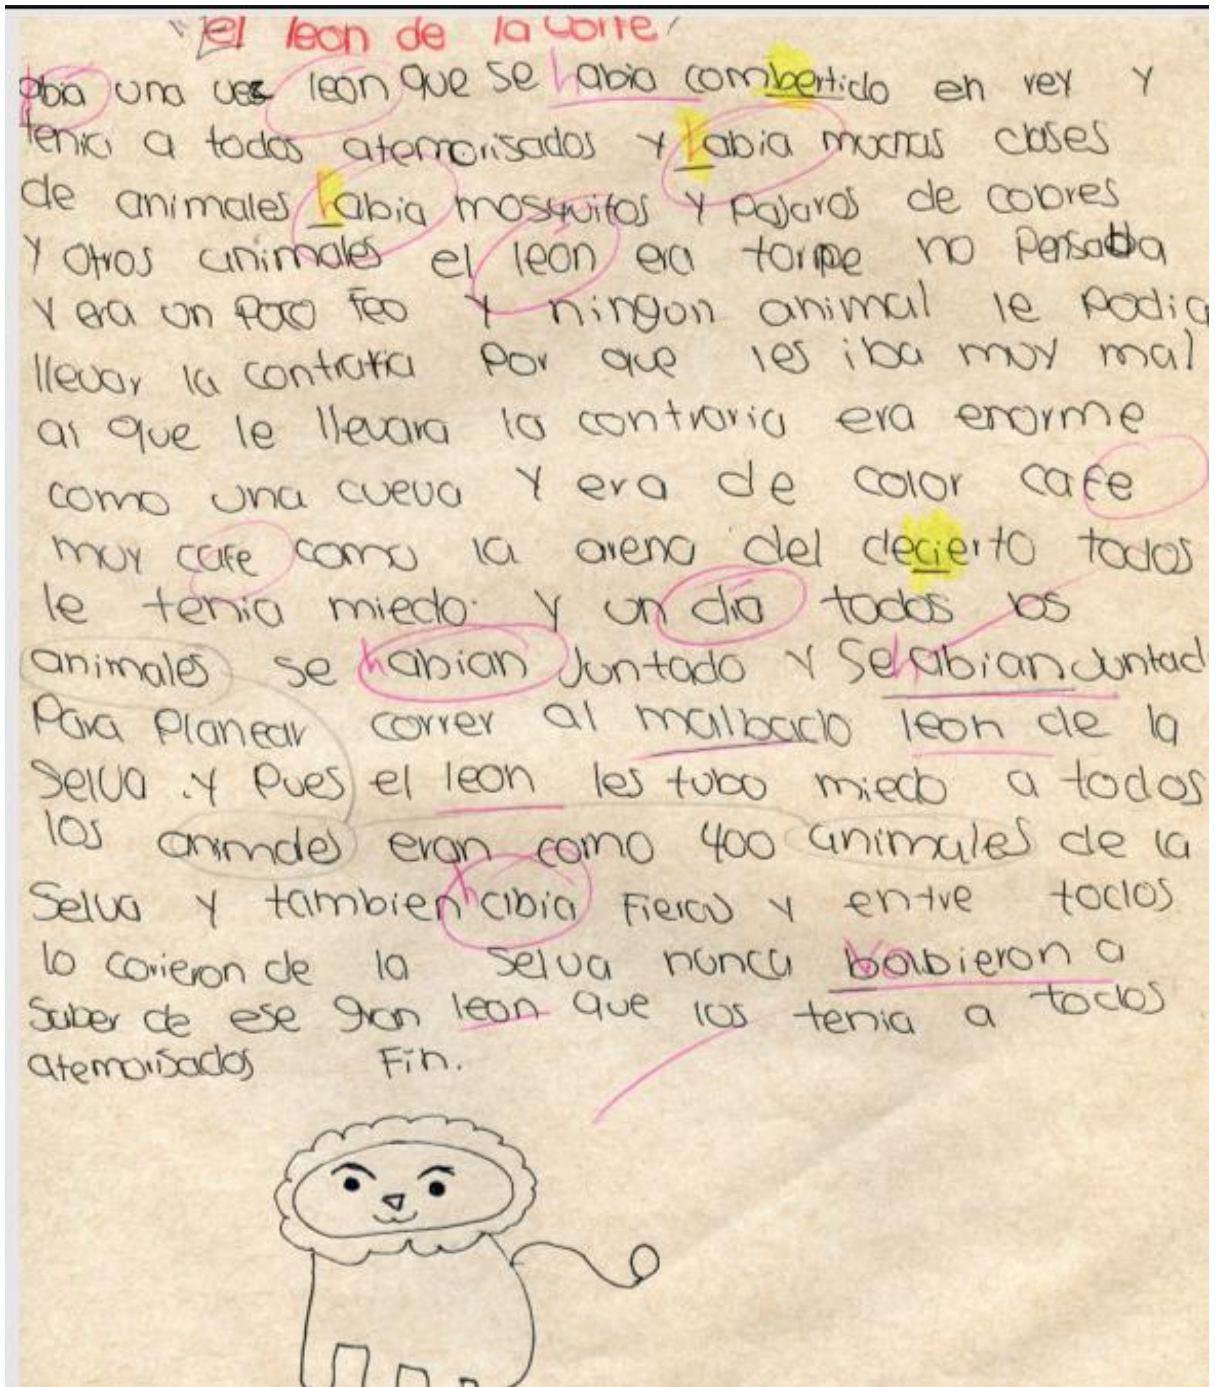 "el leon de la corte"
abia una ves leon que se habia combertido en rey y
tenia a todos atemorisados y habia muchas clases
de animales habia mosquitos y pajaros de colores
y otros animales el leon era torpe no pensaba
y era un poco feo y ningon animal le podia
llevar la contraria por que les iba muy mal
al que le llevara la contraria era enorme
como una cueva y era de color cafe
muy cafe como la arena del decierto todos
le tenia miedo. y un dia todos los
animales se habian juntado y se habian juntad
para planear correr al malbado leon de la
selva .y pues el leon les tubo miedo a todos
los animales eran como 400 animales de la
selva y tambien habia fieras y entre todos
lo corieron de la selva nunca bolbieron a
saber de ese gran leon que los tenia a todos
atemorisados Fin.